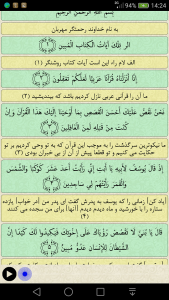 93% 14:24
بسم الله الرحمن الرحیم
به نام خداوند رحمتگر مهربان
الر تِلْكَ آيَاتُ الْكِتَابِ الْمُبِينِ ﴿١﴾
الف لام راء این است آیات کتاب روشنگر (۱)
إِنَّا أَنْزَلْنَاهُ قُرْآنًا عَرَبِيًّا لَعَلَّكُمْ تَعْقِلُونَ ﴿٢﴾
ما آن را قرآنی عربی نازل کردیم باشد که بیندیشید (۲)
نَحْنُ نَقُصُّ عَلَيْكَ أَحْسَنَ الْقَصَصِ بِمَا أَوْحَيْنَا إِلَيْكَ هَذَا الْقُرْآنَ وَإِنْ
كُنْتَ مِنْ قَبْلِهِ لَمِنَ الْغَافِلِينَ ﴿٣﴾
ما نیکوترین سرگذشت را به موجب این قرآن که به تو وحی کردیم بر تو
حکایت می کنیم و تو قطعا پیش از آن از بی خبران بودی (۳)
إِذْ قَالَ يُوسُفُ لِأَبِيهِ يَا أَبَتِ إِنِّي رَأَيْتُ أَحَدَ عَشَرَ كَوْكَبًا وَالشَّمْسَ
وَالْقَمَرَ رَأَيْتُهُمْ لِي سَاجِدِينَ ﴿٤﴾
[یاد کن] زمانی را که یوسف به پدرش گفت ای پدر من [در خواب] یازده
ستاره را با خورشید و ماه دیدم دیدم [آنها] برای من سجده می کنند
(۴)
قَالَ يَا بُنَيَّ لَا تَقْصُصْ رُؤْيَاكَ عَلَى إِخْوَتِكَ فَيَكِيدُوا لَكَ كَيْدًا إِنَّ
الشَّيْطَانَ لِلْإِنْسَانِ عَدُوٌّ مُبِينٌ ﴿٥﴾